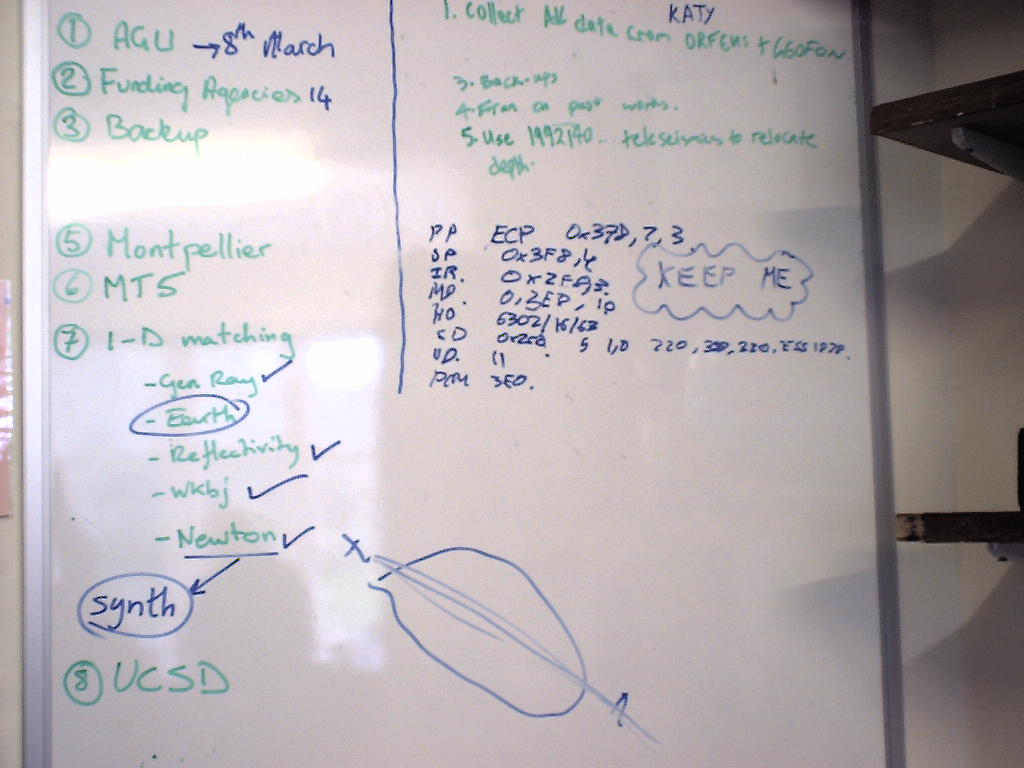 ① AGU → 8th March
② Funding Agencies 14
③ Backup
⑤ Montpellier
⑥ MT5
⑦ 1-D matching
- Gen Ray ✓
- Earth
- Reflectivity ✓
- Wkbj ✓
- Newton ✓
synth
⑧ UCSD
KATY
1. Collect data from ORFEUS + GEOFON
3. Back-ups
4. on past works.
5. Use 1992140... teleseisms to relocate
depth.
PP ECP 0x378, 7, 3
SP 0x3F8, 4
IR. 0x2F8, 3
KEEP ME
HO
SD 5 1,0 220, 330,
11
3E0.
X